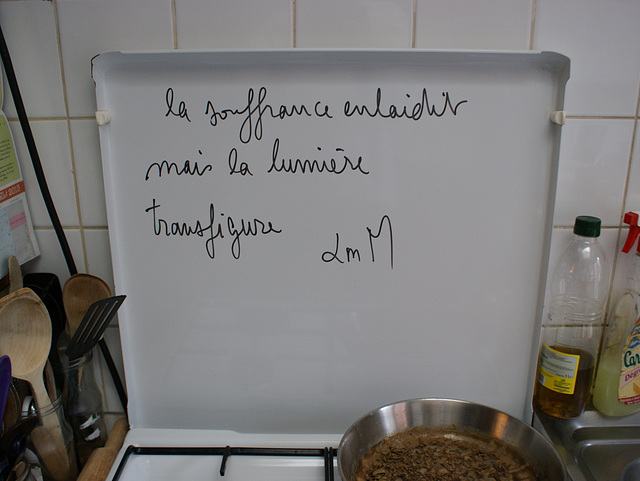 la souffrance enlaidit
mais la lumière
transfigure
LmM